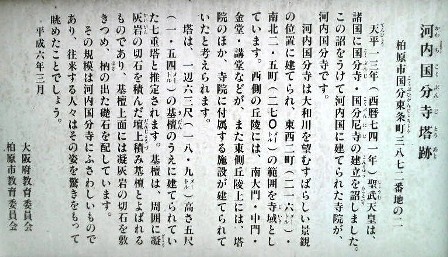 河内国分寺塔跡
かわちこくぶんじとうあと
柏原市国分東条町三八七二番地の一
天平一三年（西暦七四一年）聖武天皇は、
諸国に国分寺・国分尼寺の建立を詔しました。
この詔をうけて河内国に建てられた寺院が、
河内国分寺です。
河内国分寺は大和川を望むすばらしい景観
の位置に建てられ、東西二町（二一六㍍）・
南北二・五町（二七〇㍍）の範囲を寺域とし
ています。西側の丘陵には、南大門・中門・
金堂・講堂などが、また東側丘陵上には、塔
院のほか、寺院に付属する施設が建てられて
いたと考えられます。
塔は、一辺六三尺（一八・九㍍）高さ五尺
（一・五四㍍）の基檀のうえに建てられてい
た七重塔と推定されます。基檀は、周囲に凝
灰岩の切石を積んだ壇上積み基檀とよばれる
ものであり、基檀上面には凝灰岩の切石を敷
きつめ、枘の出た礎石を配しています。
その規模は河内国分寺にふさわしいもので
あり、往来する人々はその姿を驚きをもって
眺めたことでしょう。
平成六年三月
大阪府教育委員会
柏原市教育委員会